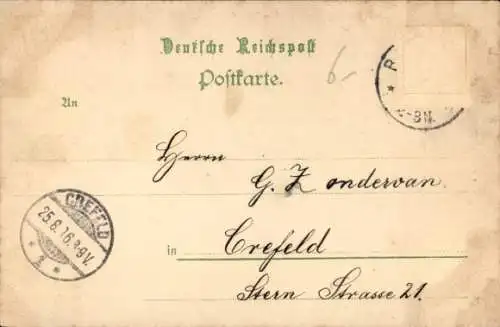 Deutsche Reichspost
Postkarte.
6-
An
Herrn
G. Zondervan
in Crefeld
Stern Strasse 21.
CREFELD
8-9V.
*
8N.